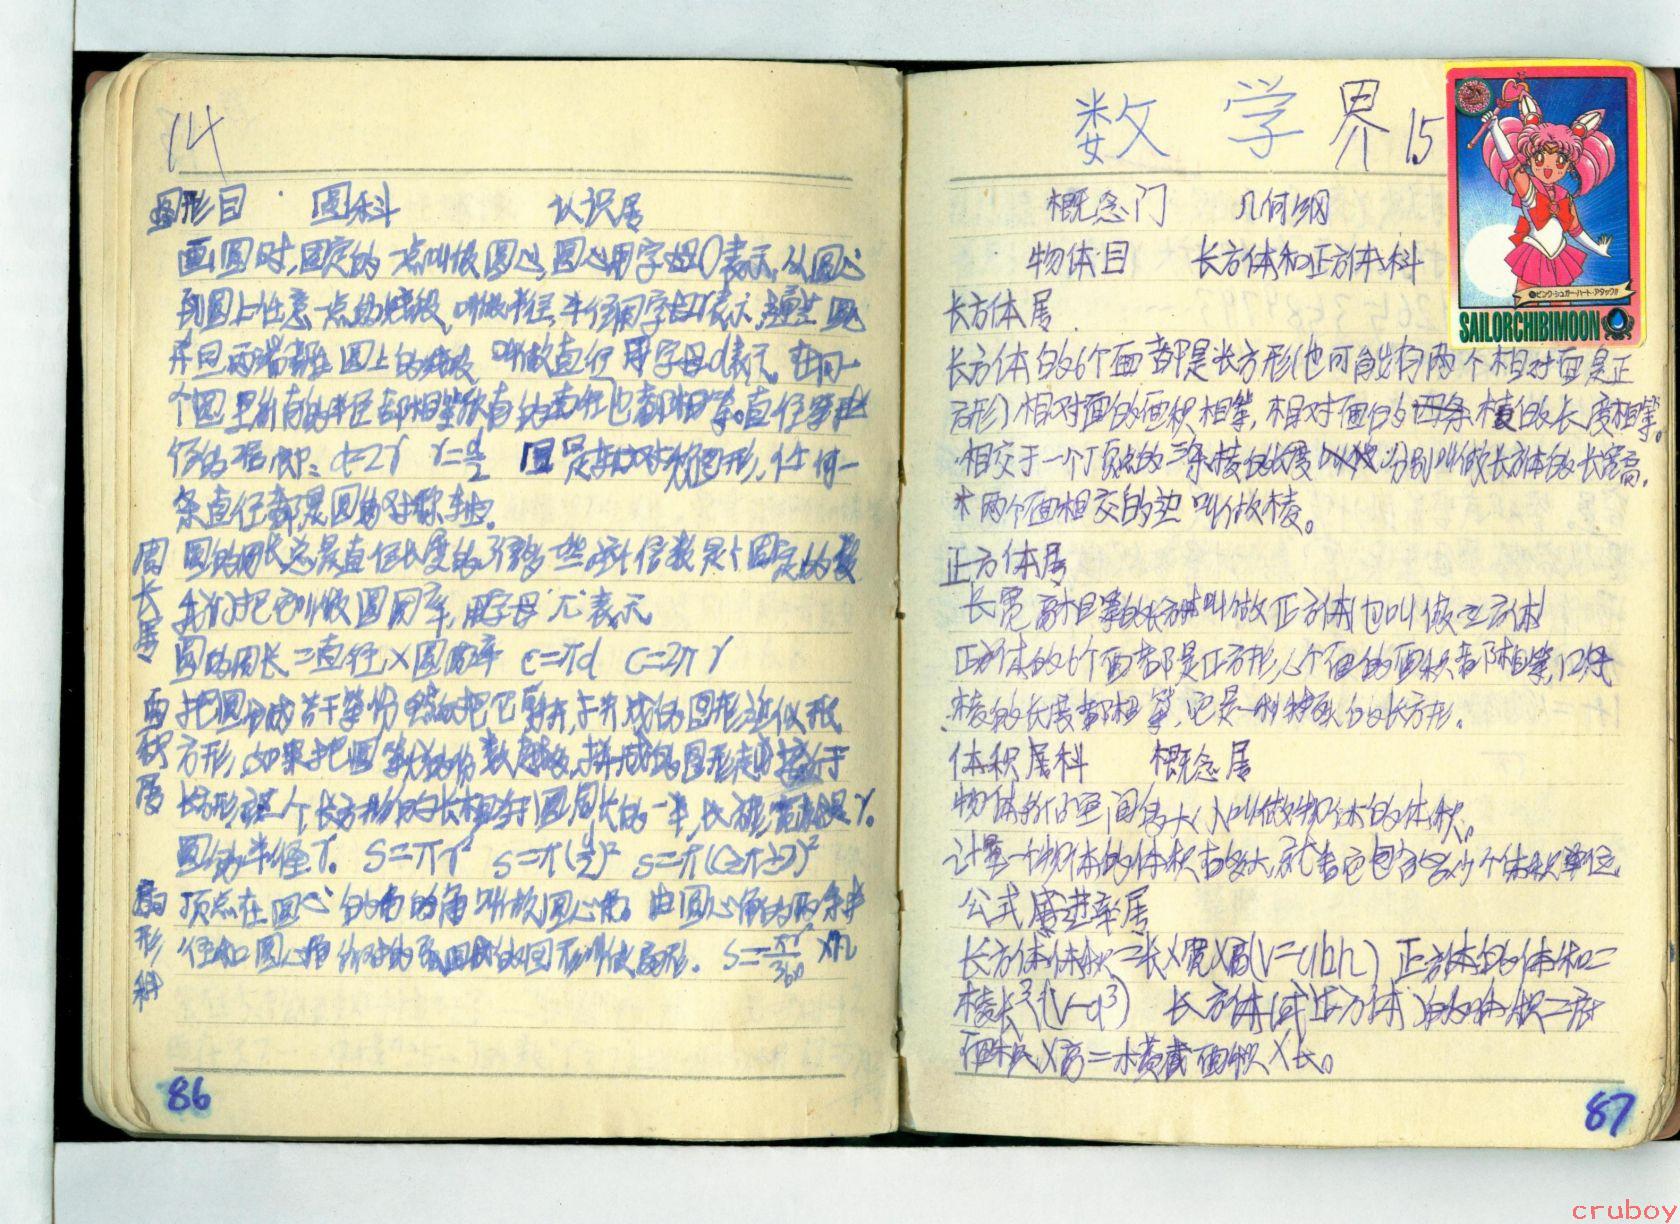 14
图形目 圆科 认识属
画圆时,固定的一点叫做圆心,圆心用字母O表示,从圆心
到圆上任意一点的线段,叫做半径,半径用字母r表示,通过圆心
并且两端都在圆上的线段 叫做直径 用字母d表示。在同一
个圆里所有的半径都相等所有的直径也都相等。直径等于半
径的2倍即:d=2r r=d/2 圆是轴对称图形,任何一
条直径都是圆的对称轴。
周长属 圆的周长总是直径长度的3倍多一些 这个倍数是个固定的数
我们把它叫做圆周率,用字母π表示
圆的周长=直径×圆周率 c=πd C=2πr
面积属 把圆分成若干等份 然后把它剪开,拼成的图形近似长
方形,如果把圆等分的份数越多,拼成的图形越接近于
长方形,这个长方形的长相当于圆周长的一半,宽是r。
圆的半径r。 S=πr² S=π(d/2)² S=π(C÷π÷2)²
扇形科 顶点在圆心的角的角叫做圆心角。由圆心角的两条半
径和圆心角所对的弧围成的图形叫做扇形。 S=πr²/360×n
86
数学界 15
概念门 几何纲
物体目 长方体和正方体科
长方体属
长方体的6个面都是长方形(也可能有两个相对面是正
方形)相对面的面积相等,相对面的四条棱的长度相等。
相交于一个顶点的三条棱的长度 分别叫做长方体的长宽高。
*两个面相交的边叫做棱。
正方体属
长宽高都相等的长方体叫做正方体也叫做立方体
正方体的6个面都是正方形,6个面的面积都相等,12条
棱的长度都相等,它是一种特殊的长方形。
体积属科 概念属
物体所占空间的大小叫做物体的体积。
计量一个物体的体积有多大,就看它包含多少个体积单位。
公式 进率属
长方体体积=长×宽×高(V=abh) 正方体的体积=
棱长³(V=a³) 长方体(或正方体)的体积=底
面积×高=横截面积×长。
87
SAILORCHIBIMOON
ピンク・シュガー・ハート・アタック!!
cruboy